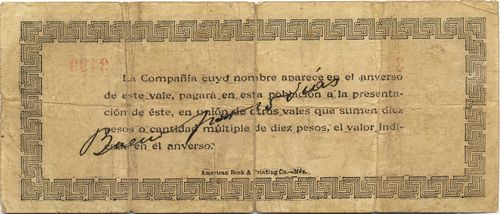 La Compañía cuyo nombre aparece en el anverso
de este vale, pagará en esta población a la presenta-
ción de éste, en unión de otros vales que sumen diez
pesos o cantidad múltiple de diez pesos, el valor indi-
en el anverso.
Bueno
American Book & Printing Co.—Méx.